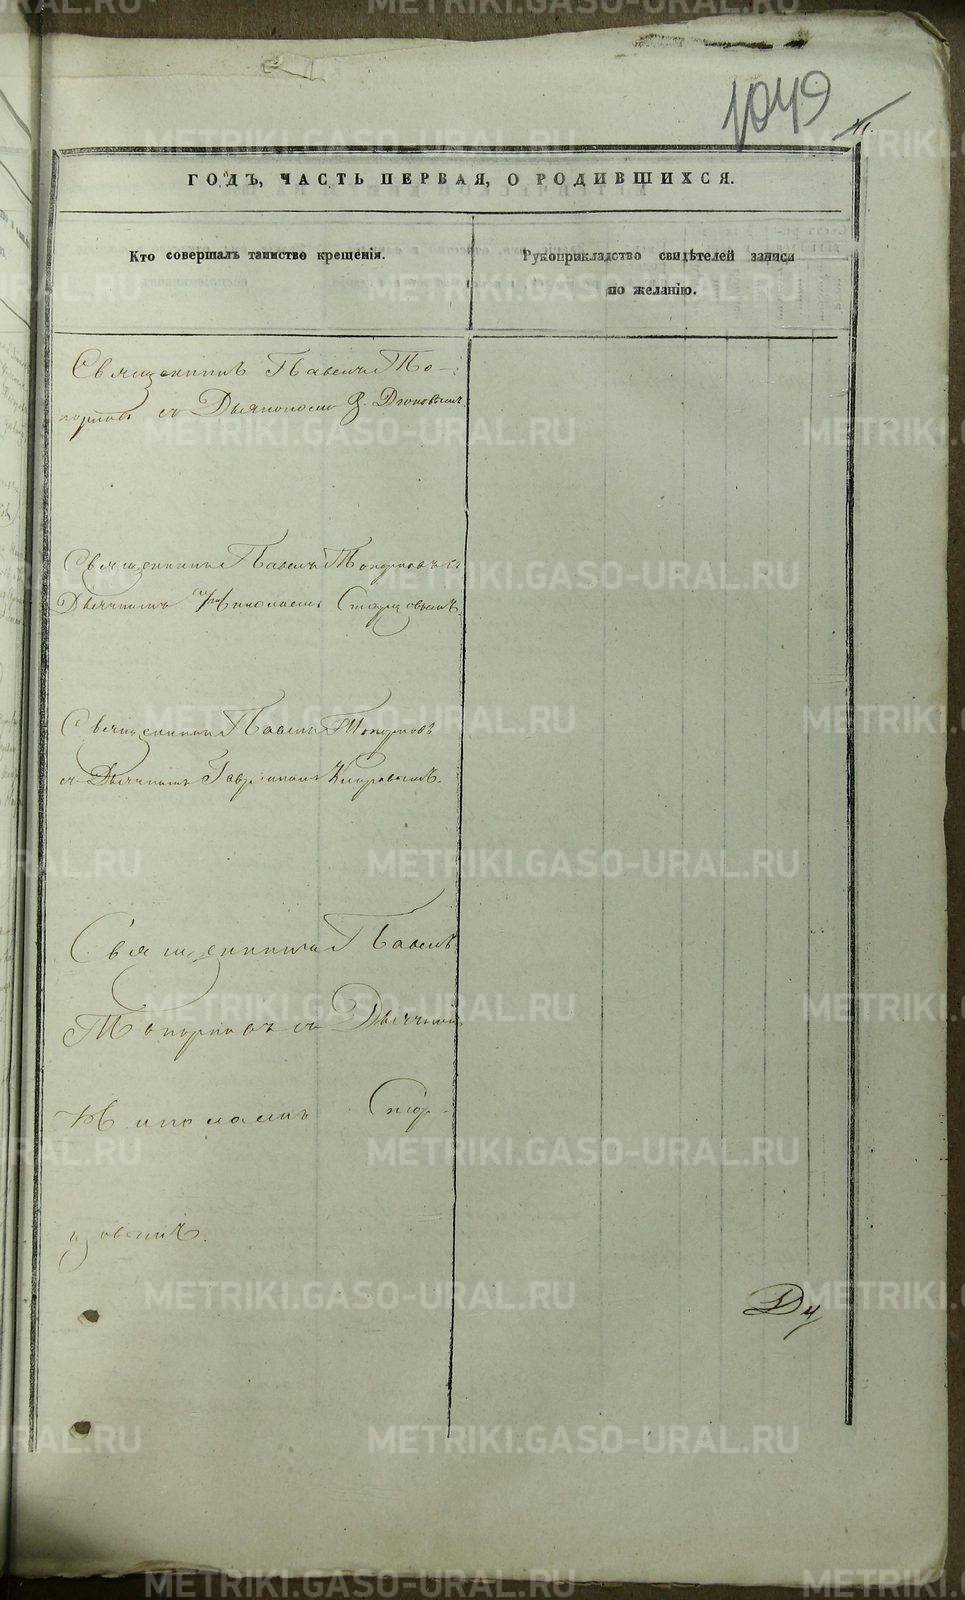 1049
ГОДЪ, ЧАСТЬ ПЕРВАЯ, О РОДИВШИХСЯ.
Кто совершалъ таинство крещенія.
Рукоприкладство свидѣтелей записи
по желанію.
Священникъ Павелъ То-
порковъ съ Дьякономъ
Священникъ Павелъ Топорковъ съ
Дьячкомъ Николаемъ Старцовымъ.
Священникъ Павелъ Топорковъ
съ Дьячкомъ
Священникъ Павелъ
Топорковъ съ Дьячкомъ
Николаемъ Стар-
цовымъ.
METRIKI.GASO-URAL.RU